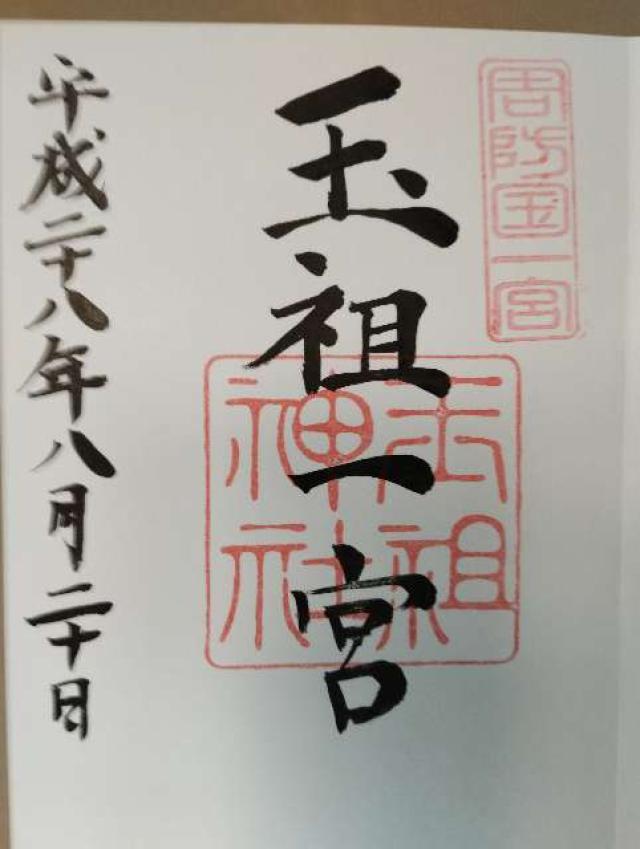 周防国一宮
玉祖一宮
玉祖
神社
平成二十八年八月二十日